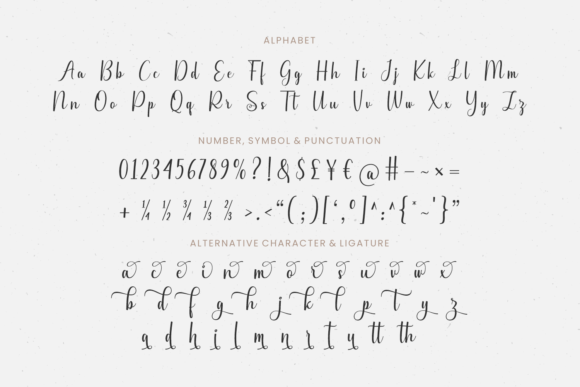 ALPHABET
Aa Bb Cc Dd Ee Ff Gg Hh Ii Jj Kk Ll Mm
Nn Oo Pp Qq Rr Ss Tt Uu Vv Ww Xx Yy Zz
NUMBER, SYMBOL & PUNCTUATION
0123456789%?!&$£¥€@#-~×=
+ ¼ ½ ¾ ⅓ ⅔ >.<“(;)[‘,º]^:^{*~'}”
ALTERNATIVE CHARACTER & LIGATURE
a c e i n m o r s u v w x
b d f g h j k l p t y z
a d h i l m n r t u tt th